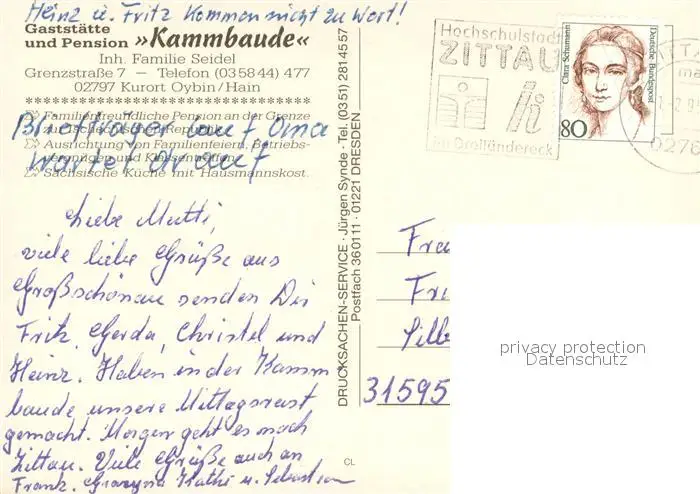 Heinz u. Fritz kommen nicht zu Wort!
Gaststätte
und Pension »Kammbaude«
Inh. Familie Seidel
Grenzstraße 7 — Telefon (03 58 44) 477
02797 Kurort Oybin/Hain
Familienfreundliche Pension an der Grenze
zur Tschechischen Republik
Ausrichtung von Familienfeiern, Betriebs-
vergnügen und Klassentreffen
Sächsische Küche mit Hausmannskost.
Briefträger lauf Oma
wartet drauf
Liebe Mutti,
viele liebe Grüße aus
Großschönau senden Dir
Fritz, Gerda, Christel und
Heinz. Haben in der Kamm
baude unsere Mittagsrast
gemacht. Morgen geht es nach
Zittau. Viele Grüße auch an
Frank, Grazyna, Kathi u. Sebastian
CL
DRUCKSACHEN-SERVICE · Jürgen Synde · Tel. (03 51) 2 81 45 57
Postfach 36 01 11 · 01221 DRESDEN
Hochschulstadt
ZITTAU
im Dreiländereck
Clara Schumann
Deutsche Bundespost
80
0276
Fra
Fri
Silb
31595
privacy protection
Datenschutz